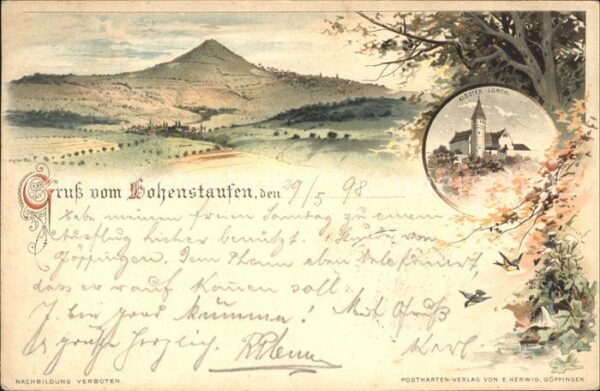 KLOSTER LORCH.
Gruß vom Hohenstaufen, den 29/5 98
Habe meinen freien Sonntag zu einem
Ausflug hieher benützt. von
Göppingen. Dem eben telefoniert,
das er rauf kommen soll.
I bin grad Mit Gruß
herzlich. Karl.
NACHBILDUNG VERBOTEN.
POSTKARTEN-VERLAG VON E. HERWIG, GÖPPINGEN.